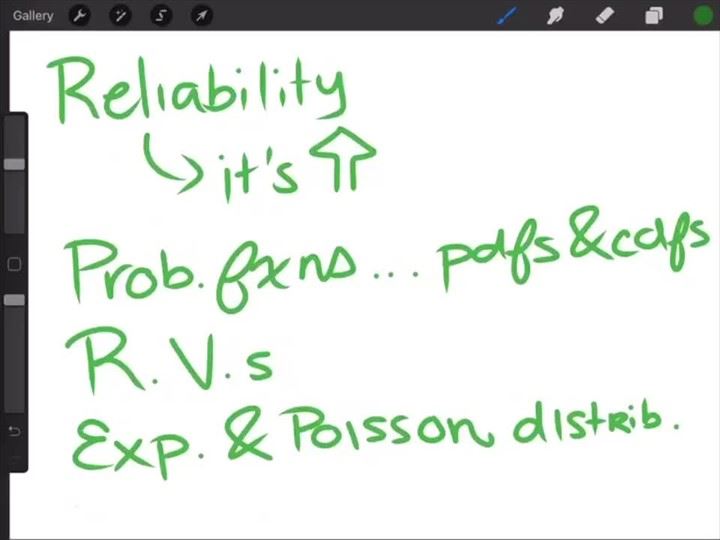 Gallery
Reliability
it's
Prob. fxns... pdfs & cdfs
R.V.s
Exp. & Poisson distrib.